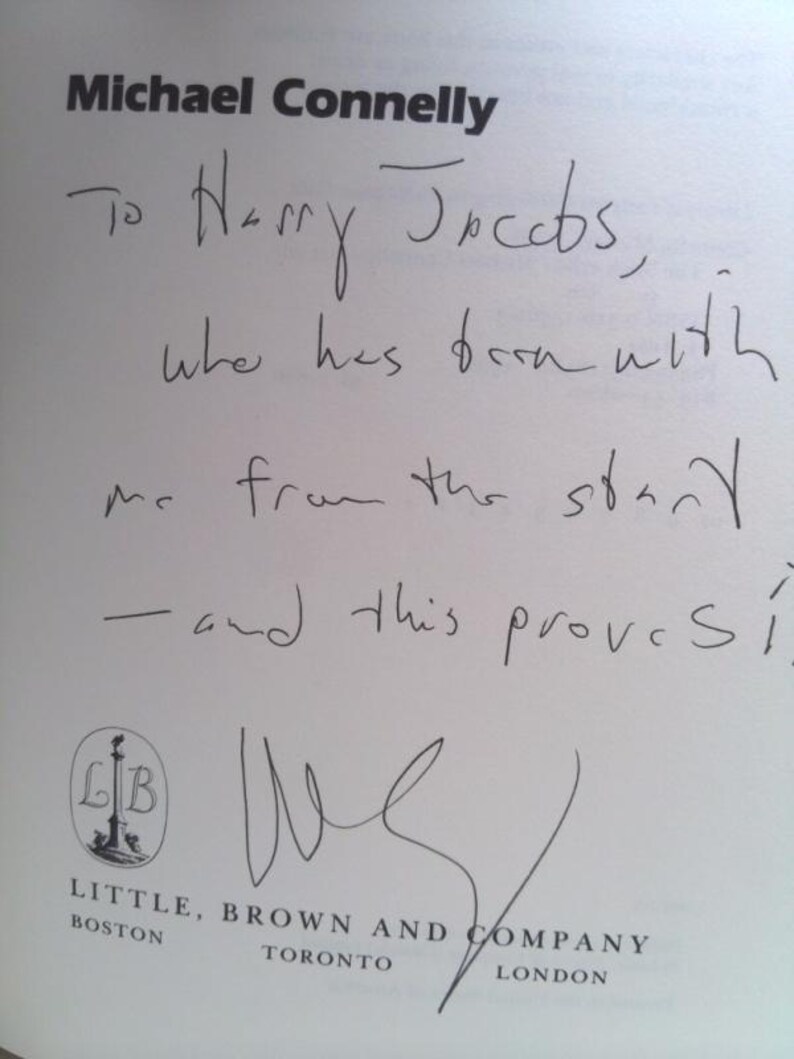 Michael Connelly
To Harry Jacobs,
who has been with
me from the start
— and this proves it
L B
LITTLE, BROWN AND COMPANY
BOSTON TORONTO LONDON